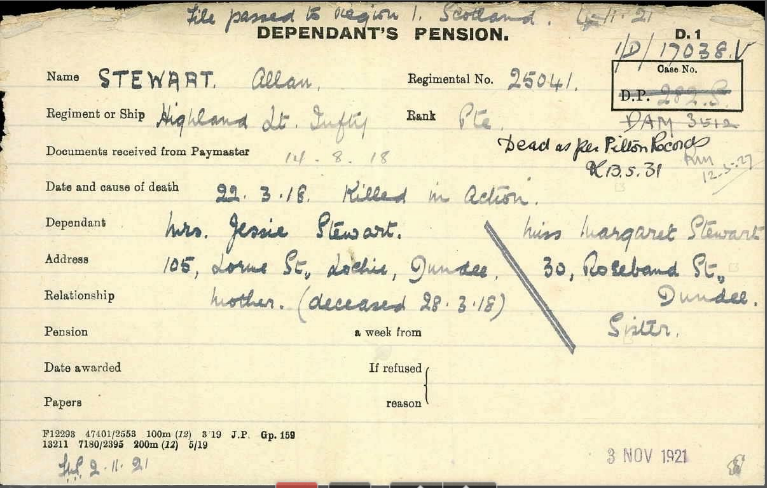 File passed to Region 1. Scotland. 4.11.21
DEPENDANT'S PENSION.
D.1
1/D/17038.V
Case No.
D.P. 282.S
DAM 3512
Name STEWART. Allan. Regimental No. 25041.
Regiment or Ship Highland Lt. Inftry Rank Pte.
Documents received from Paymaster 14.8.18
Dead as per Pilton Records
13.5.31
12.5.27
Date and cause of death 22.3.18. Killed in Action.
Dependant Mrs. Jessie Stewart. Miss Margaret Stewart
Address 105, Lorne St., Lochie, Dundee. 30, Rosebank St.,
Dundee.
Relationship Mother. (deceased 28.3.18)
Sister.
Pension a week from
Date awarded If refused
Papers reason
F12293 47401/2553 100m (12) 3 19 J.P. Gp. 159
13211 7180/2395 200m (12) 5/19
2.11.21
3 NOV 1921